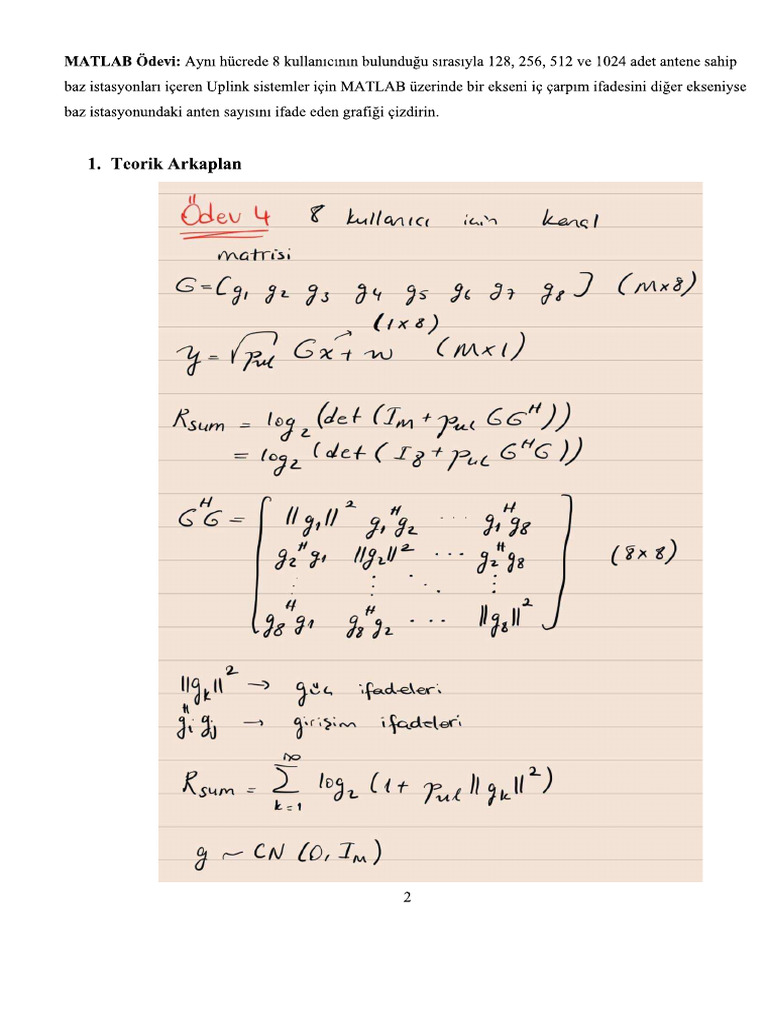 MATLAB Ödevi: Aynı hücrede 8 kullanıcının bulunduğu sırasıyla 128, 256, 512 ve 1024 adet antene sahip
baz istasyonları içeren Uplink sistemler için MATLAB üzerinde bir ekseni iç çarpım ifadesini diğer ekseniyse
baz istasyonundaki anten sayısını ifade eden grafiği çizdirin.
1. Teorik Arkaplan
Ödev 4 8 kullanıcı için kanal
matrisi
G=[g₁ g₂ g₃ g₄ g₅ g₆ g₇ g₈] (M×8)
(1×8)
y = √pul Gx + w (M×1)
Rsum = log₂ (det (I_M + pul GGᴴ))
= log₂ (det (I₈ + pul GᴴG))
GᴴG = [ ||g₁||² g₁ᴴg₂ ... g₁ᴴg₈
g₂ᴴg₁ ||g₂||² ... g₂ᴴg₈ (8×8)
⋮ ⋮ ⋱ ⋮
g₈ᴴg₁ g₈ᴴg₂ ... ||g₈||² ]
||g_k||² → güç ifadeleri
g_iᴴ g_j → girişim ifadeleri
Rsum = ∞∑k=1 log₂ (1 + pul ||g_k||²)
g ~ CN (0, I_M)
2